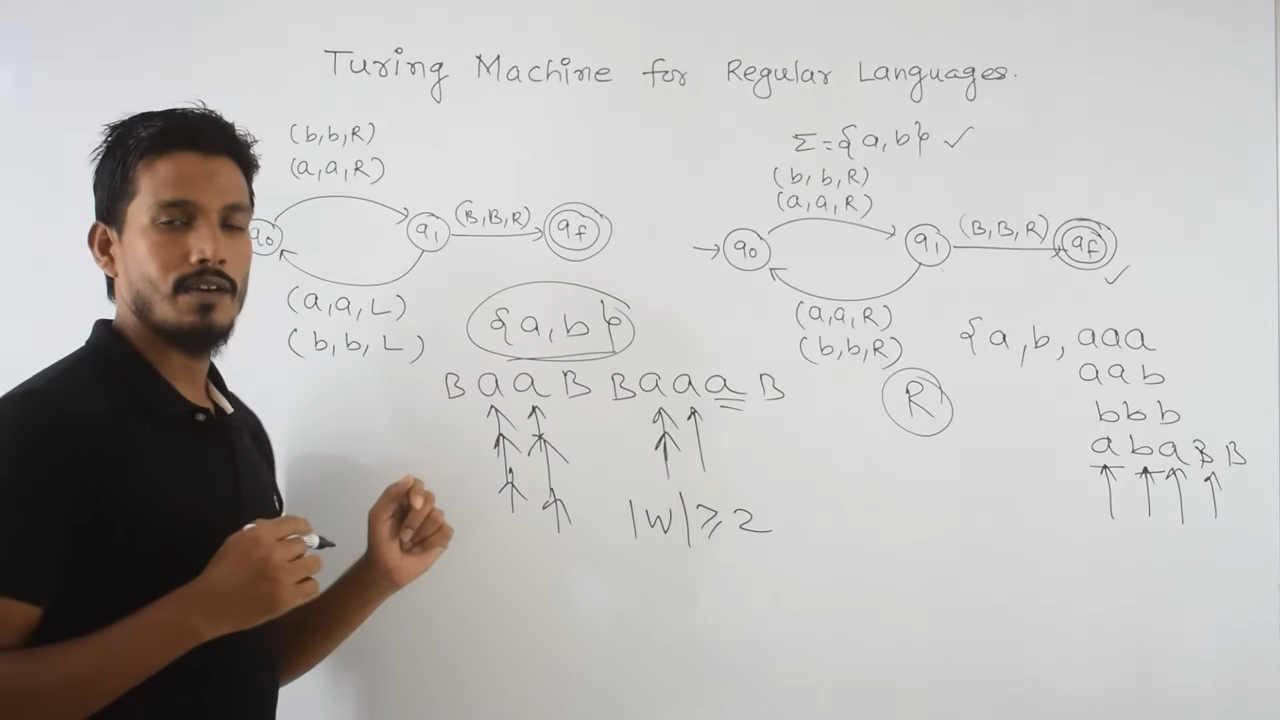 Turing Machine for Regular Languages.
(b,b,R)
(a,a,R)
q0
q1
(B,B,R)
qf
(a,a,L)
(b,b,L)
{a,b}
B a a B B a a a B
|W| ≥ 2
Σ={a,b} ✓
(b,b,R)
(a,a,R)
q0
q1
(B,B,R)
qf
✓
(a,a,R)
(b,b,R)
R
{a,b, aaa
aab
bbb
abaBB